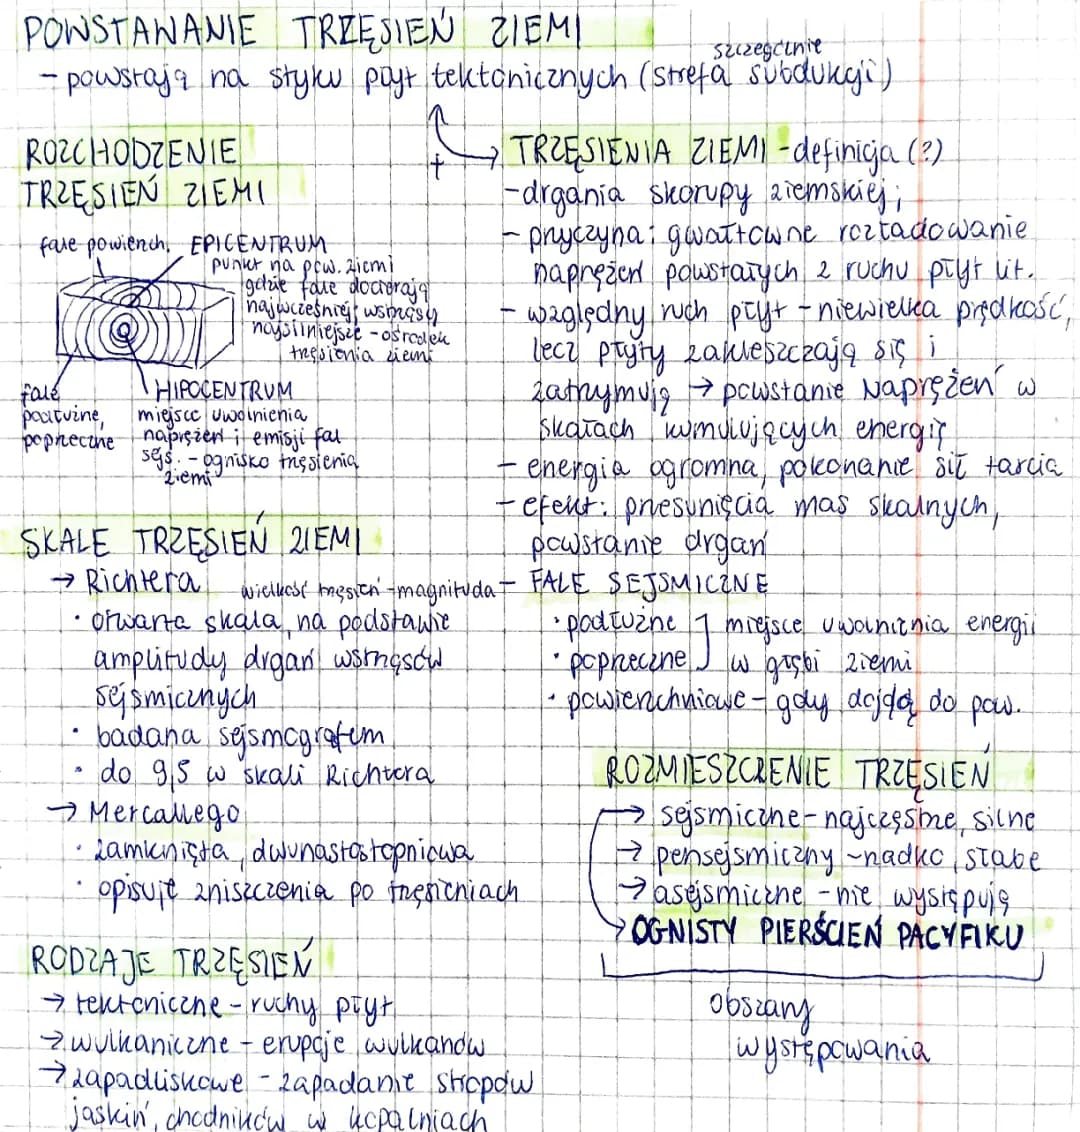 POWSTAWANIE TRZĘSIEŃ ZIEMI
szczególnie
- powstają na styku płyt tektonicznych (strefa subdukcji)
ROZCHODZENIE
TRZĘSIEŃ ZIEMI
fale powierzch.
EPICENTRUM
punkt na pow. ziemi
gdzie fale docierają
najwcześniej, wstrząsy
najsilniejsze - ośrodek
trzęsienia ziemi
fale
podłużne,
poprzeczne
HIPOCENTRUM
miejsce uwolnienia
naprężeń i emisji fal
sejs. - ognisko trzęsienia
ziemi
SKALE TRZĘSIEŃ ZIEMI
→ Richtera wielkość trzęsień - magnituda
• otwarta skala, na podstawie
amplitudy drgań wstrząsów
sejsmicznych
• badana sejsmografem
• do 9,5 w skali Richtera
→ Mercallego
• zamknięta, dwunastostopniowa
• opisuje zniszczenia po trzęsieniach
RODZAJE TRZĘSIEŃ
→ tektoniczne - ruchy płyt
→ wulkaniczne - erupcje wulkanów
→ zapadliskowe - zapadanie stropów
jaskiń, chodników w kopalniach
+
→ TRZĘSIENIA ZIEMI - definicja (?)
- drgania skorupy ziemskiej;
- przyczyna: gwałtowne rozładowanie
naprężeń powstałych z ruchu płyt lit.
- względny ruch płyt - niewielka prędkość,
lecz płyty zakleszczają się i
zatrzymują → powstanie naprężeń w
skałach kumulujących energię
- energia ogromna, pokonanie sił tarcia
- efekt: przesunięcia mas skalnych,
powstanie drgań
- FALE SEJSMICZNE
• podłużne ] miejsce uwolnienia energii
• poprzeczne ] w głębi ziemi
• powierzchniowe - gdy dojdą do pow.
ROZMIESZCZENIE TRZĘSIEŃ
→ sejsmiczne - najczęstsze, silne
→ pensejsmiczny - rzadko, słabe
→ asejsmiczne - nie występują
→ OGNISTY PIERŚCIEŃ PACYFIKU
obszary
występowania